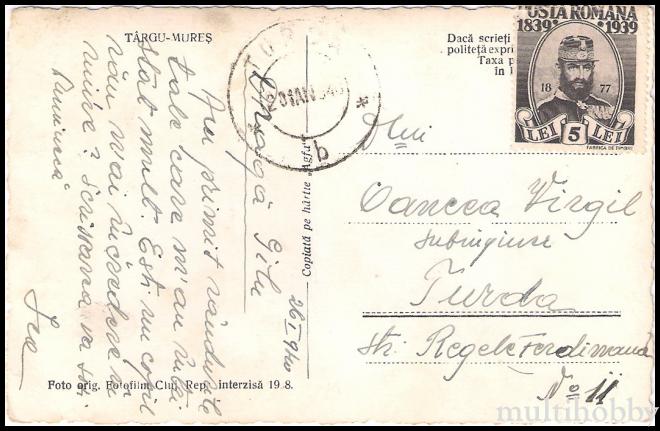 TÂRGU-MUREȘ
Dragă Gilu
26/I 940
Am primit rândurile
tale care m'au întri-
stat mult. Ești un copil
rău mai încredere în
mine? Scrisoarea va
Duminecă
Copiată pe hârtie „Agfa"
Foto orig. Fotofilm, Cluj. Rep. interzisă 19 8.
TURDA
20 IAN. 940
b
Dacă scrieți
politeță expri
Taxa p
în l
POSTA ROMANA
1839 1939
18 77
LEI 5 LEI
FABRICA DE TIMBRE
Dlui
Oancea Virgil
Subinginer
Turda
str. Regele Ferdinand
No 11
multihobby